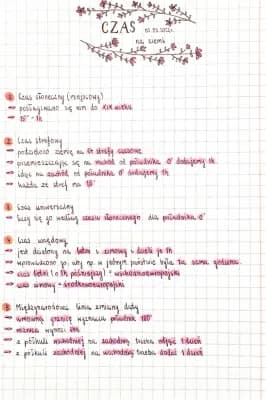 CZAS
na ziemi
1 Czas słoneczny (miejscowy)
→ posługiwano się nim do XIX wieku
→ 15° - 1h
2 Czas strefowy
→ podzielono ziemię na 24 strefy czasowe
→ przemieszczając się na wschód od południka 0° dodajemy 1h
→ idąc na zachód od południka 0° dodajemy 1h
→ każda ze stref ma 15°
3 Czas uniwersalny
→ liczy się go według czasu słonecznego dla południka 0°
4 Czas urzędowy
→ jest dzielony na letni i zimowy i dzieli je 1h
→ wprowadzono go, aby np. w jednym państwie była ta sama godzina.
→ czas letni (o 1h późniejszy) = wschodnioeuropejski
→ czas zimowy = środkowoeuropejski
5 Międzynarodowa linia zmiany daty
→ umowną granicę wyznacza południk 180°
→ różnica wynosi 24h
→ z półkuli wschodniej na zachodnią trzeba odjąć 1 dzień
→ z półkuli zachodniej na wschodnią trzeba dodać 1 dzień